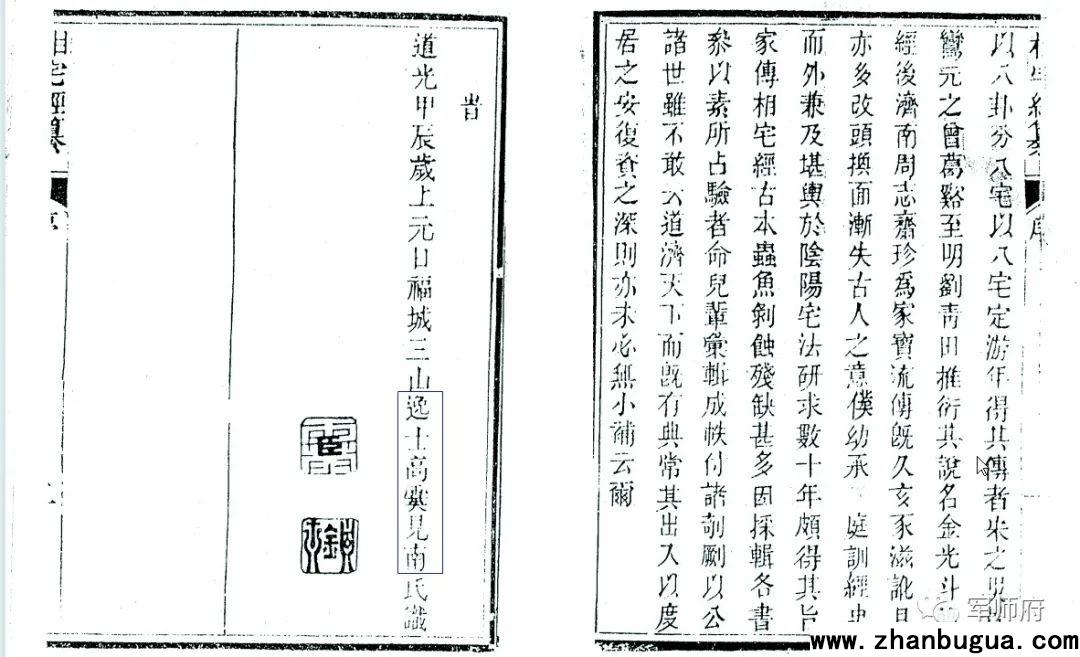 相宅經纂
序
以八卦分八宅以八宅定游年得其傳者宋之
鸞元之曾葛谿至明劉青田推衍其說名金光斗
經後濟南周志齋珍爲家寶流傳旣久亥豕滋訛且
亦多改頭換面漸失古人之意僕幼承 庭訓經史
而外兼及堪輿於陰陽宅法研求數十年頗得其旨
家傳相宅經古本蟲魚剝蝕殘缺甚多因採輯各書
參以素所占驗者命兒輩彙輯成帙付諸剞劂以公
諸世雖不敢云道濟天下而旣有典常其出入以度
居之安復資之深則亦未必無小補云爾
旹
道光甲辰歲上元日福城三山逸士高見南氏識
相宅經纂
序
军师府
www.zhanbugua.com